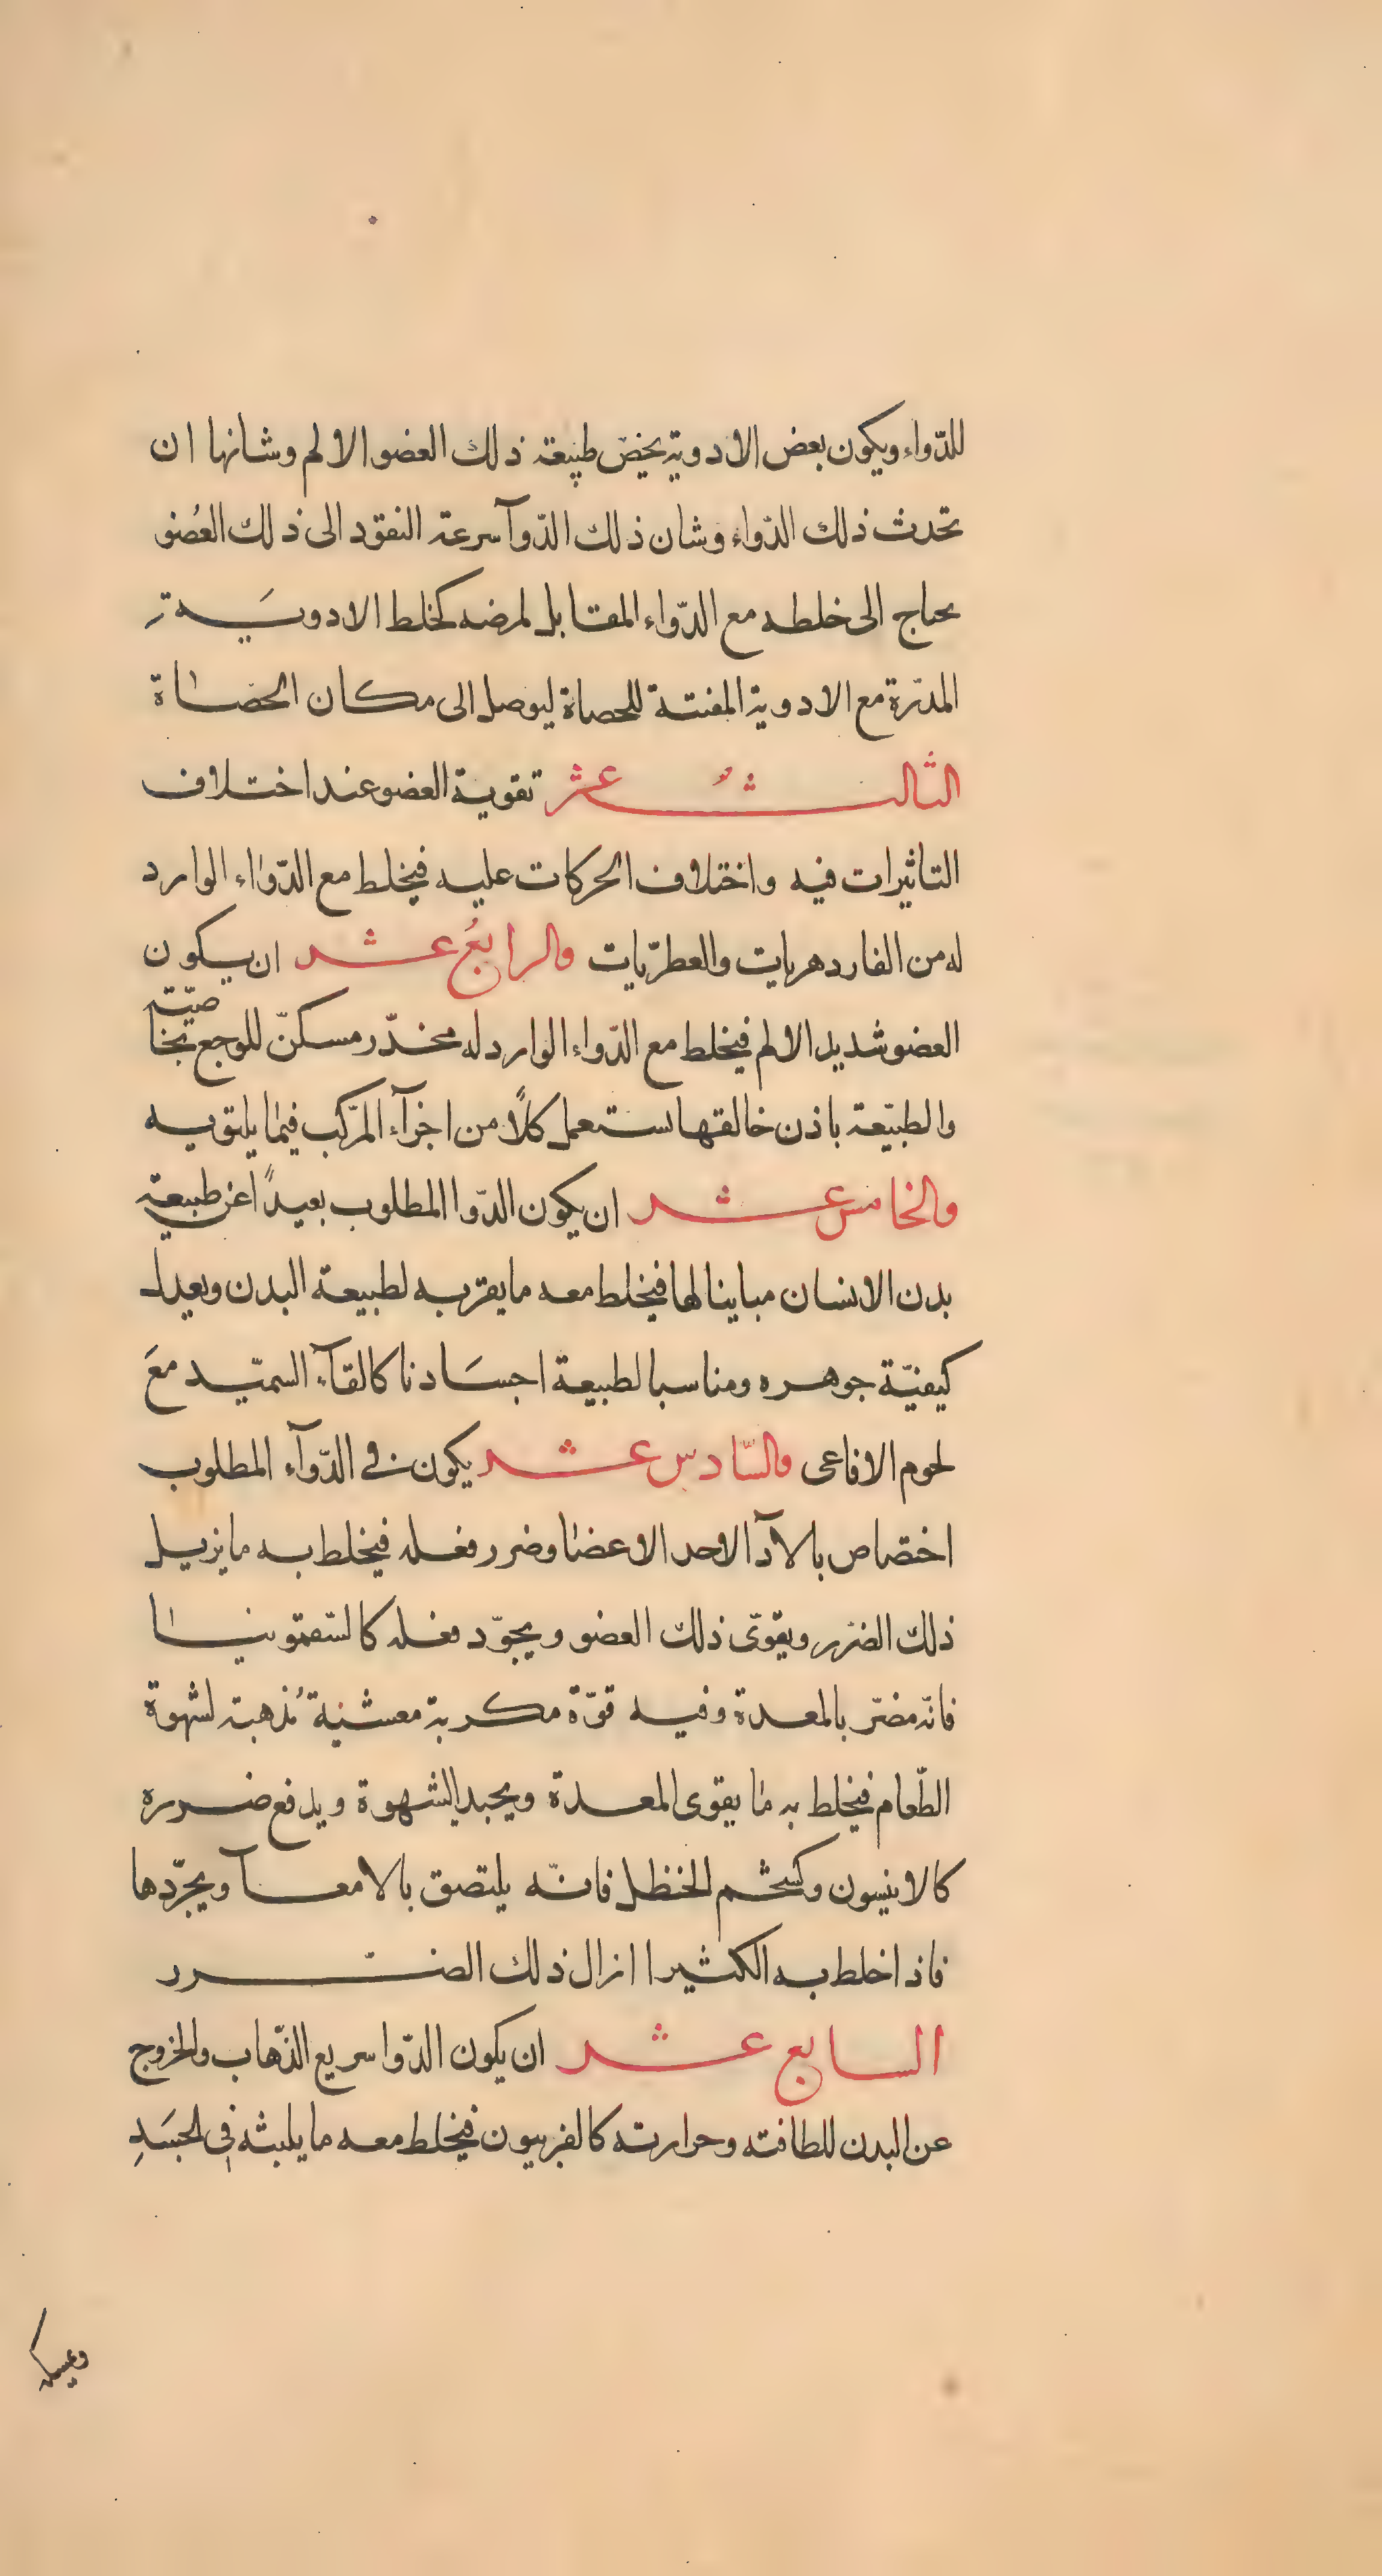 للدّواء ويكون بعض الادوية يخصّ طبيعة ذلك العضو الالم وشانها ان
تحدث ذلك الدّواء وشان ذلك الدّوآ سرعة النقود الى ذلك العُضو
يحتاج الى خلطه مع الدّواء المقابل لمرضه كخلط الادويَة
المدرّة مع الادوية المفتتة للحصاة ليوصل الى مكان الحصاة
الثالثُ عشر تقوية العضو عند اختلاف
التاثيرات فيه واختلاف الحركات عليه فيخلط مع الدّواء الوارد
له من الفاردهريات والعطريّات والرابعُ عشر ان يكون
العضو شديد الالم فيخلط مع الدّواء الوارد له مخدّر مسكنّ للوجع بخاصيّته
والطبيّعة باذن خالقها تستعمل كلاً من اجزآء المركّب فيما يليق به
والخامس عشر ان يكون الدّوا المطلوب بعيداً عن طبيعة
بدن الانسان مباينا لها فيخلط معه ما يقربه لطبيعة البدن ويعدل
كيفيّة جوهره ومناسبا لطبيعة اجسَادنا كالقآء السميد معَ
لحوم الافاعى والسّادس عشر يكون في الدّوآء المطلوب
اختصاص بالآد الاحد الاعضا وضرر فعله فيخلط به ما يزيل
ذلك الضرر ويقوّى ذلك العضو ويجوّد فعله كالسقمونيا
فانّه مضرّ بالمعدة وفيه قوّة مكربة مغشية مُذهبة لشهوة
الطّعام فيخلط به ما يقوى المعدة ويجيد الشهوة ويدفع ضرره
كالانيسون وكشحم الحنظل فانّه يلتصق بالامعآ ويجرّدها
فاذا خلط به الكثيرا ازال ذلك الضّرر
السابع عشر ان يكون الدّوا سريع الذّهاب والخروج
عن البدن للطافته وحرارته كالفربيون فيخلط معه ما يلبثه في الجسَدِ